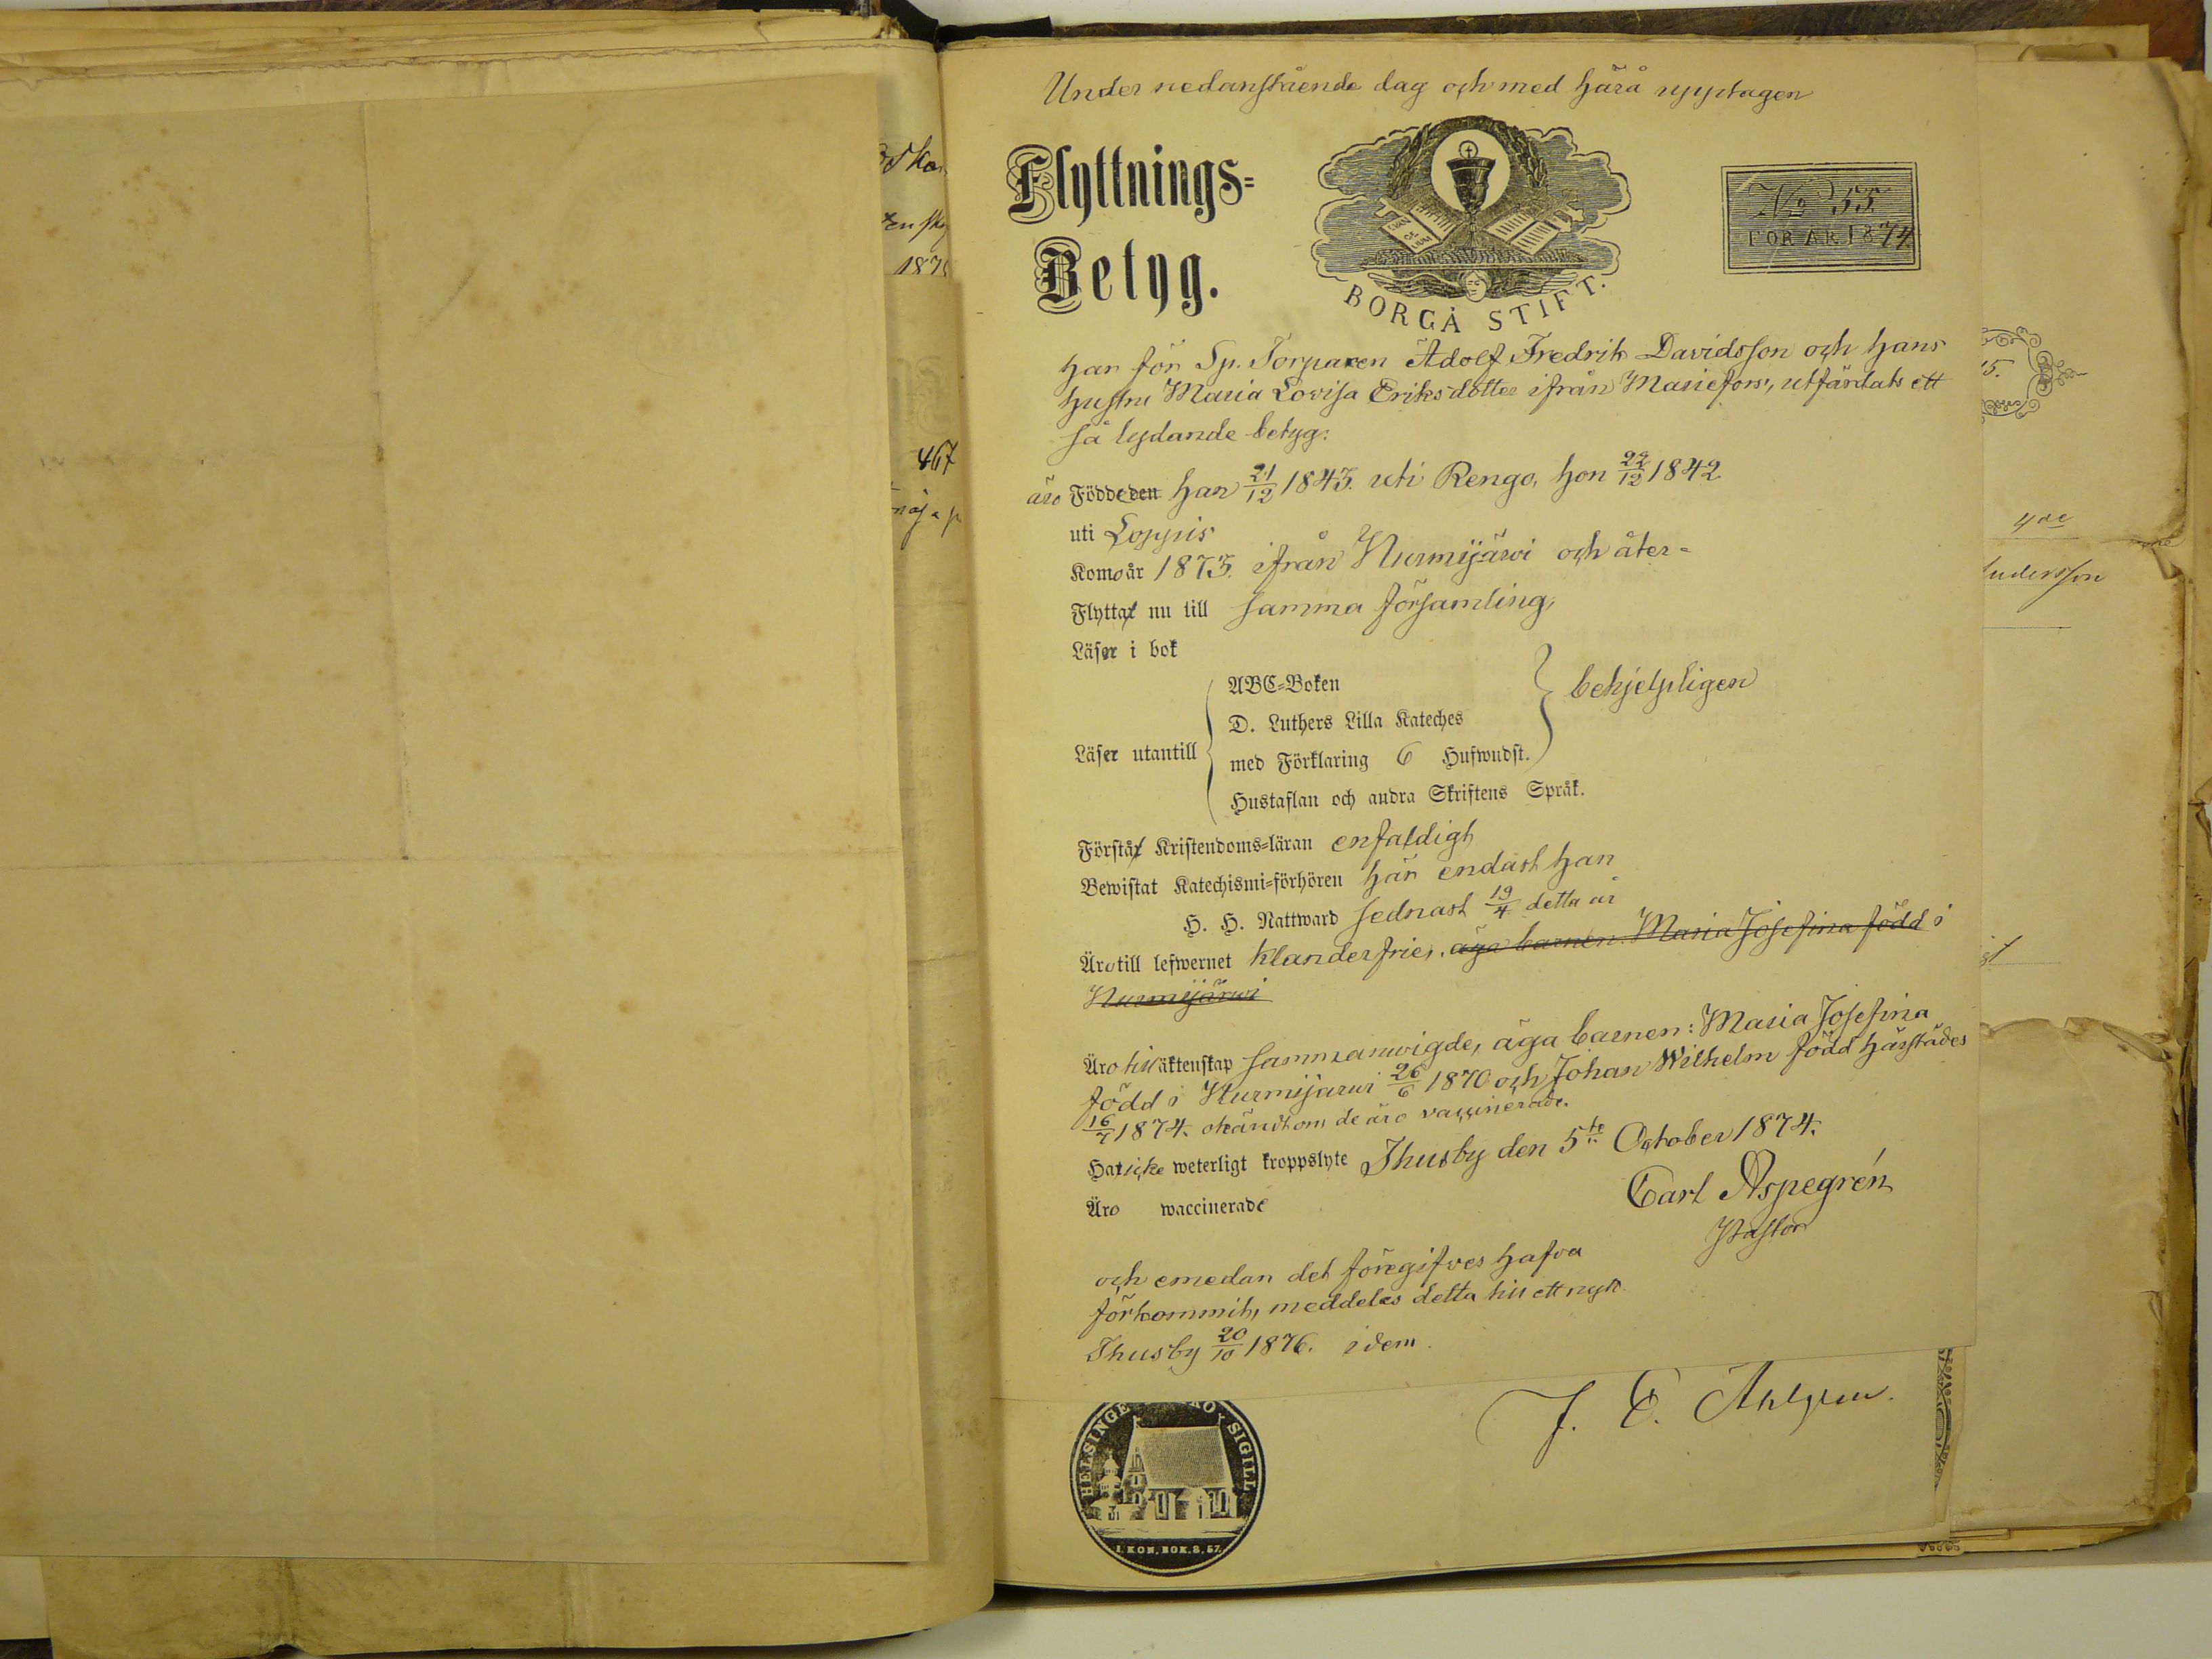 Under nedanstående dag och med härå upptagen
Flyttnings=
Betyg.
EVAN
GE
LIUM
BORGÅ STIFT.
No 55
FÖR ÅR 1874.
har för Sp. Torparen Adolf Fredrik Davidsson och hans
hustru Maria Lovisa Eriksdotter ifrån Mariefors, utfärdats ett
så lydande betyg:
äro Födde den han 21/12 1843. uti Rengo, hon 22/12 1842
uti Loppis
Komo år 1873. ifrån Nurmijärvi och åter-
Flytta nu till samma församling,
Läser i bok
ABC=Boken
D. Luthers Lilla Kateches
behjelpligen
Läser utantill
med Förklaring 6 Hufwudst.
Hustaflan och andra Skriftens Språk.
Förstå Kristendoms=läran enfaldigt
Bewistat Katechismi=förhören här endast han
H. H. Nattward sednast 19/4 detta år
Äro till lefwernet klanderfrie, äga barnen: Maria Josefina född i
Nurmijärwi
Äro till äktenskap sammanwigde, äga barnen: Maria Josefina
född i Nurmijärwi 26/6 1870 och Johan Wilhelm född härstädes
16/7 1874. okändt om de äro vaccinerade.
Ha icke weterligt kroppslyte Thusby den 5te October 1874.
Äro waccinerade
Carl Aspegrén
Pastor
och emedan det föregifves hafva
förkommit, meddelas detta till ett nytt.
Thusby 20/10 1876. idem.
J. E. Ahlgren.
HELSINGE SIGILL
1. KON. BOK. 8. 57.
467
15.
4de